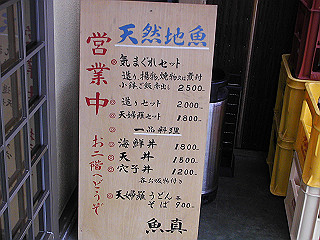 天然地魚
営業中
お二階へどうぞ
気まぐれセット
造り、揚物、焼物又は煮付
小鉢、ご飯、赤出し 2,500
造りセット 2,000
天婦羅セット 1,800
一品料理
海鮮丼 1800
天丼 1500
穴子丼 1200
各お吸物付き
天婦羅うどん
そば 900
魚真